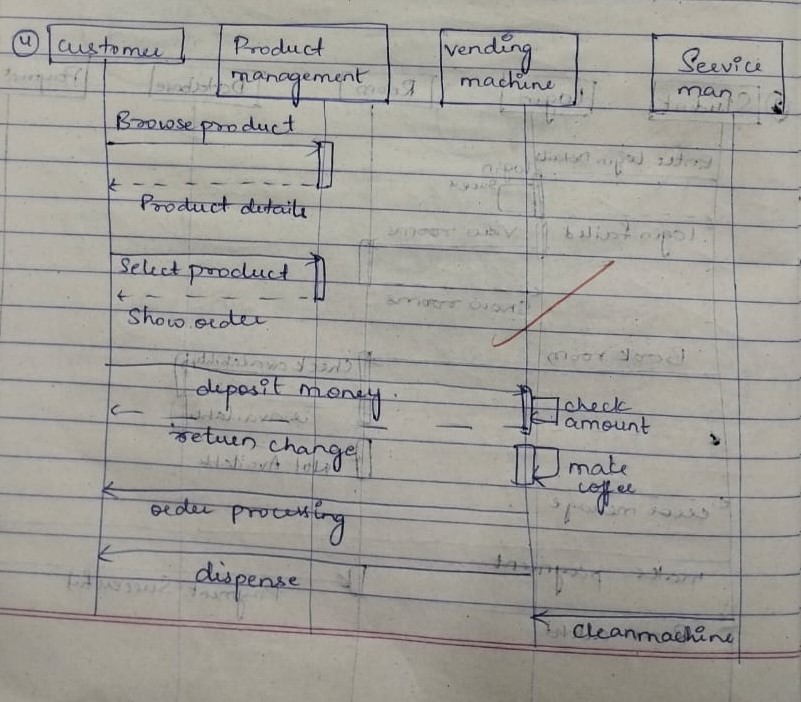 4
Customer
Product
management
vending
machine
Service
man
Browse product
Product details
Select product
Show order
deposit money.
check
amount
return change
make
coffee
order processing
dispense
cleanmachine